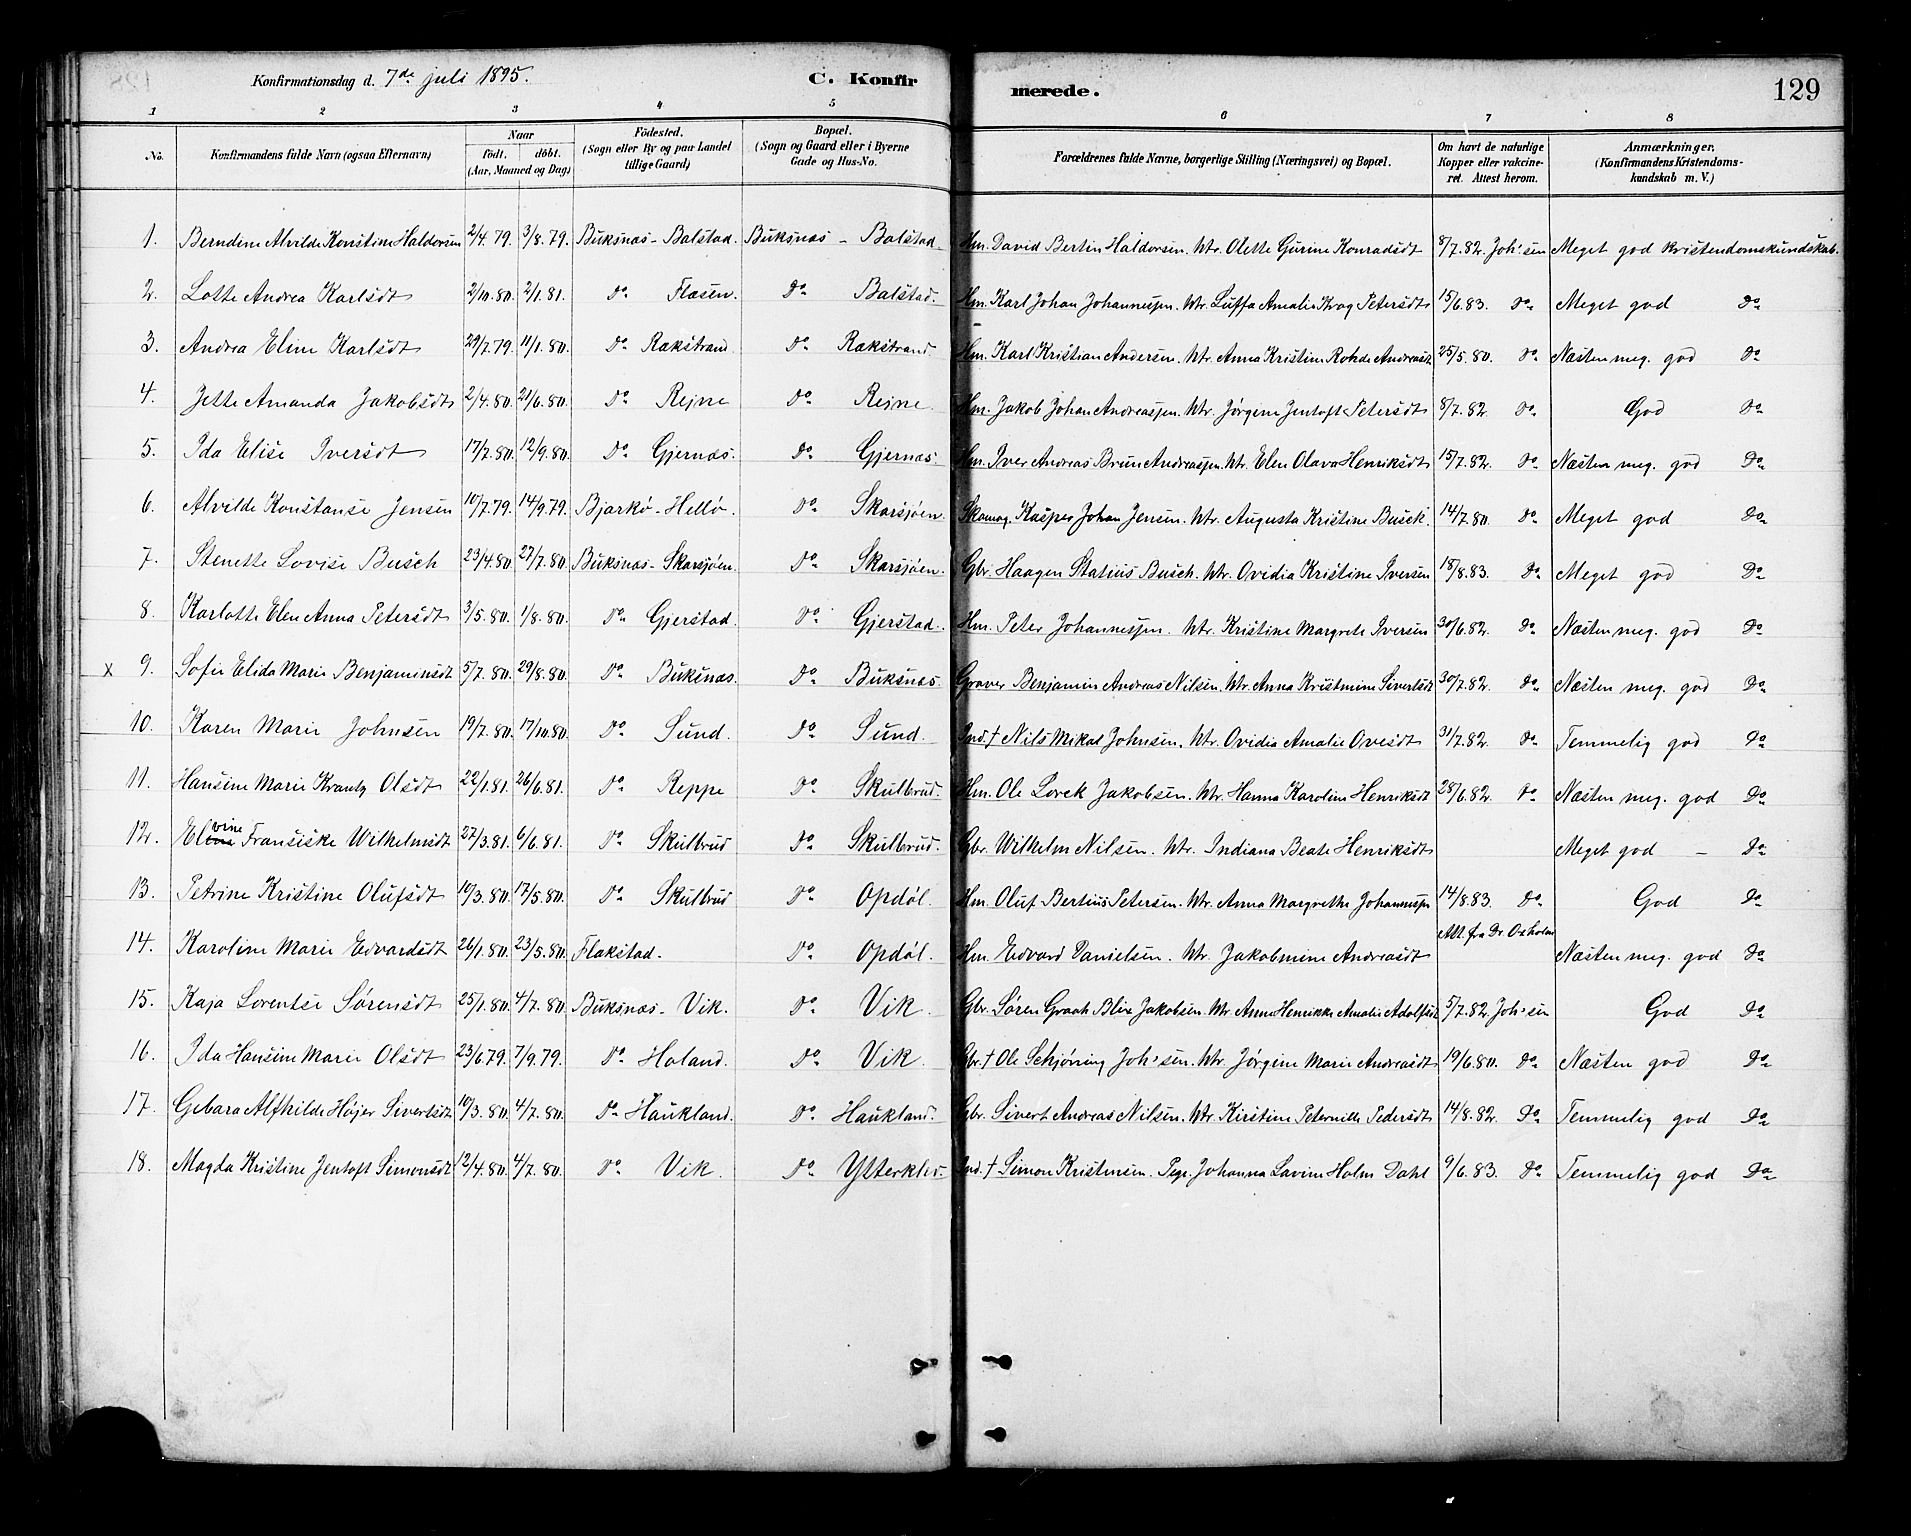 Konfirmationsdag d. 7de juli 1895.
C. Konfirmerede.
129
1 2 3 4 5 6 7 8
No. Konfirmandens fulde Navn (ogsaa Efternavn) Naar födt. döbt. (Aar, Maaned og Dag) Födested. (Sogn eller By og paa Landet tillige Gaard) Bopæl. (Sogn og Gaard eller i Byerne Gade og Hus-No. Forældrenes fulde Navne, borgerlige Stilling (Næringsvei) og Bopæl. Om havt de naturlige Kopper eller vakcineret. Attest herom. Anmærkninger. (Konfirmandens Kristendomskundskab m. V.)
1. Berndine Alvilde Konstine Haldorsen 2/4.79. 3/8.79. Buksnæs - Balstad. Buksnæs - Balstad. Hm. David Bertin Haldorsen. Htr. Olette Gurine Konradsdt 8/7.82. Joh'sen Meget god kristendomskundskab.
2. Lotte Andrea Karlsdt 2/10.80. 2/1.81. Do Flæsen. Do Balstad. Hm. Karl Johan Johannessen. Htr. Luffa Amalie Krog Petersdt 15/6.83. Do Meget god Do
3. Andrea Eline Karlsdt 29/7.79. 11/1.80. Do Rækstrand. Do Rækstrand Hm. Karl Kristian Andersen. Htr. Anna Kristine Rohde Andreasdt 25/5.80. Do Næsten meg. god Do
4. Jette Amanda Jakobsdt 2/4.80. 21/6.80. Do Rejne Do Reine. Hm. Jakob Johan Andreassen. Htr. Jørgine Jentoft Petersdt 8/7.82. Do God Do
5. Ida Elise Iversdt 17/7.80. 12/9.80. Do Gjernæs. Do Gjernæs. Hm. Iver Andreas Brun Andreassen. Htr. Elen Olava Henriksdt 15/7.82. Do Næsten meg. god Do
6. Alvilde Konstanse Jensen 10/7.79. 14/9.79. Bjarkø - Hellø. Do Skarsjøen. Skomag. Kasper Johan Jensen. Htr. Augusta Kristine Busch. 14/7.80. Do Meget god Do
7. Stenette Lovise Busch 23/4.80. 27/7.80. Buksnæs - Skarsjøen. Do Skarsjøen. Gbr. Haagen Statius Busch. Htr. Ovidia Kristine Iversen 18/8.83. Do Meget god Do
8. Karlotte Elen Anna Petersdt 3/5.80. 1/8.80. Do Gjerstad. Do Gjerstad. Hm. Peter Johannessen. Htr. Kristine Margrete Iversen 30/6.82. Do Næsten meg. god Do
x 9. Sofie Elida Marie Benjaminsdt 5/7.80. 29/8.80. Do Buksnæs. Do Buksnæs. Graver Benjamin Andreas Nilsen. Htr. Anna Kristmine Sivertsdt 30/7.82. Do Næsten meg. god Do
10. Karen Marie Johnsen 19/7.80. 17/10.80. Do Sund. Do Sund. Ind. † Nils Mikal Johnsen. Htr. Ovidia Amalie Ovesdt 31/7.82. Do Temmelig god Do
11. Hansine Marie Krantz Olsdt 22/1.81. 26/6.81. Do Reppe Do Skulbrud. Hm. Ole Lorek Jakobsen. Htr. Hanna Karoline Henriksdt 28/6.82. Do Næsten meg. god Do
12. Elvine Fransiske Wilhelmsdt 27/3.81. 6/6.81. Do Skulbrud Do Skulbrud. Gbr. Wilhelm Nilsen. Htr. Indiana Beate Henriksdt Meget god - Do
13. Petrine Kristine Olufsdt 10/3.80. 17/5.80. Do Skulbrud Do Opdøl. Hm. Oluf Bertius Petersen. Htr. Anna Margrethe Johannessen 14/8.83. Do God Do
14. Karoline Marie Edvardsdt 26/1.80. 23/5.80. Flakstad. Do Opdøl. Hm. Edvard Danielsen. Htr. Jakobmine Andreasdt Att. fra Dr. Oxholm Næsten meg. god Do
15. Kaja Lorentse Sørensdt 25/1.80. 4/7.80. Buksnæs - Vik. Do Vik. Gbr. Søren Graah Blix Jakobsen. Htr. Anne Henrikke Amalie Adolfsdt 5/7.82. Joh'sen God Do
16. Ida Hansine Marie Olsdt 23/6.79. 7/9.79. Do Holand. Do Vik. Gbr. † Ole Schjørring Joh'sen. Htr. Jørgine Marie Andreasdt 19/6.80. Do Næsten god Do
17. Gebara Alfhilde Højer Sivertsdt 10/3.80. 4/7.80. Do Haukland. Do Haukland. Gbr. Sivert Andreas Nilsen. Htr. Kirstine Peternille Pedersdt 14/8.82. Do Temmelig god Do
18. Magda Kristine Jentoft Simonsdt 12/4.80. 4/7.80. Do Vik. Do Ytterklev. Ind. † Simon Kristensen. Pige Johanna Lavine Holm Dahl 9/6.83. Do Temmelig god Do